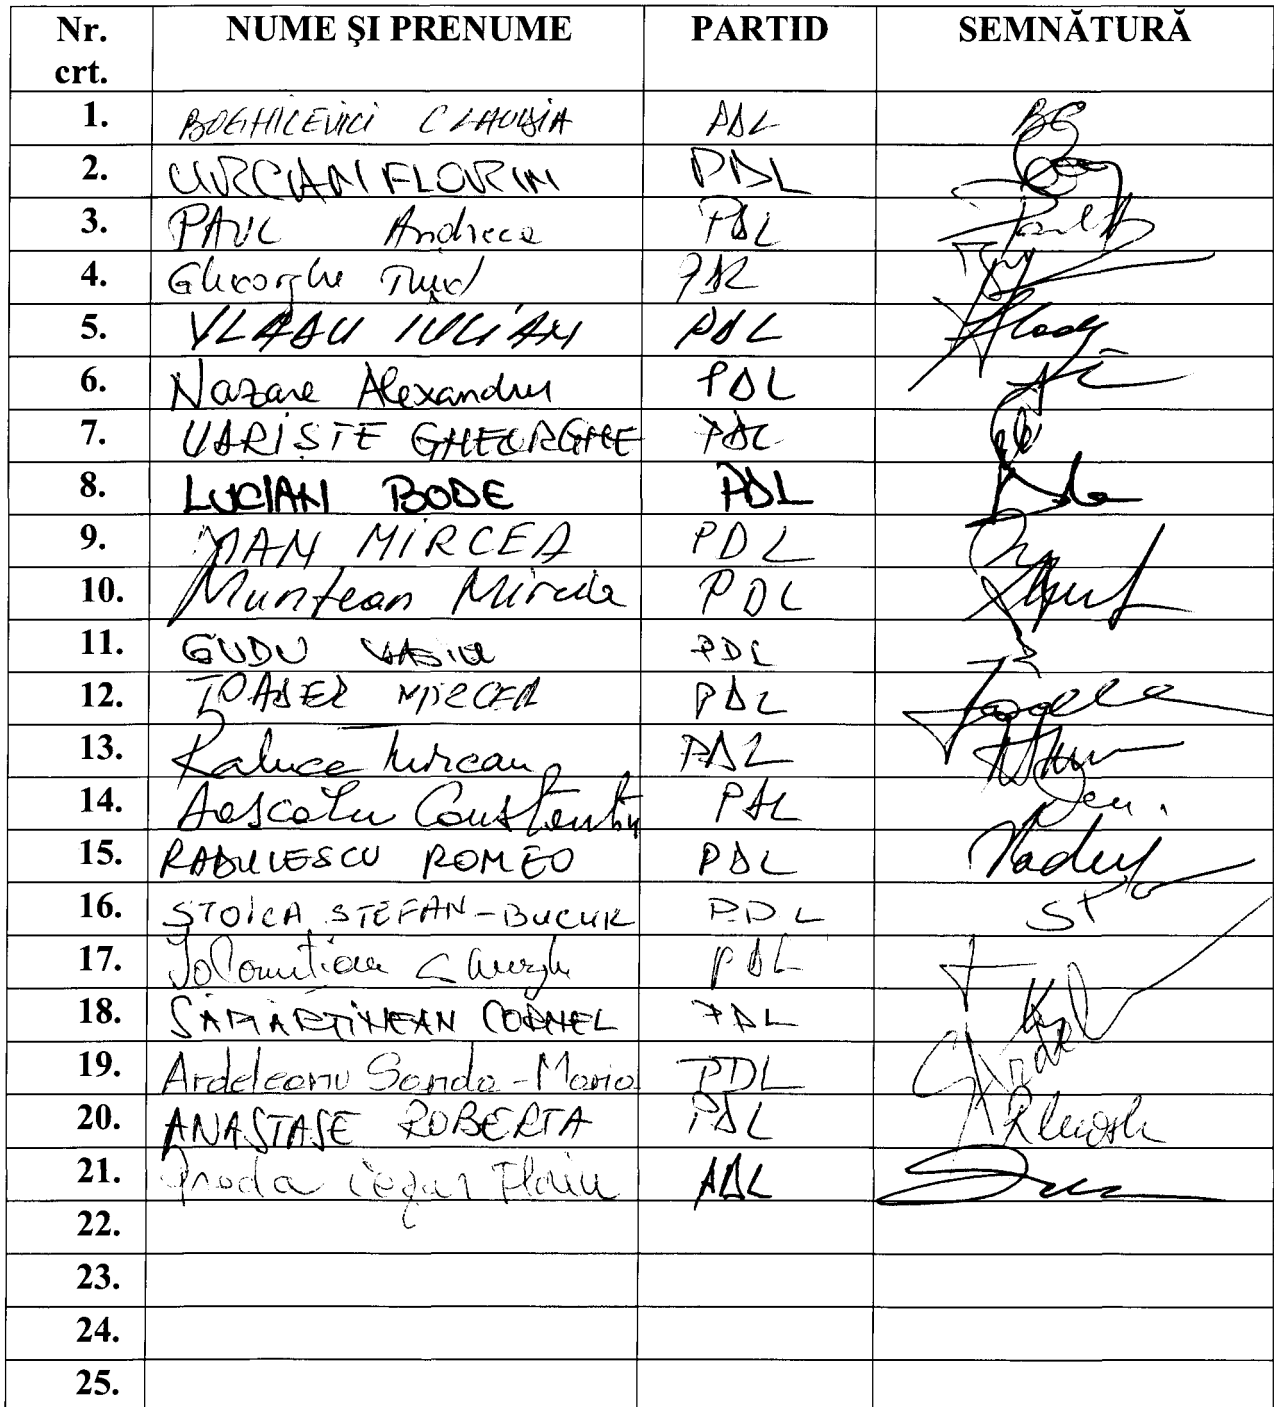 Nr. crt. NUME ŞI PRENUME PARTID SEMNĂTURĂ
1. BOGHICEVICI CLAUDIA PDL
2. URCAN FLORIN PDL
3. PAUL Andreea PDL
4. Gheorghe PDL
5. VLADU IULIAN PDL
6. Nazare Alexandru PDL
7. UARISTE GHEORGHE PDL
8. LUCIAN BODE PDL
9. MAN MIRCEA PDL
10. Muntean Mircea PDL
11. GUDU VASILE PDL
12. TOADER MIRCEA PDL
13. Raluca Turcan PDL
14. Dascalu Constantin PDL
15. RADULESCU ROMEO PDL
16. STOICA STEFAN-BUCUR PDL
17. Ialomitianu Gheorghe PDL
18. SĂMĂRTINEAN CORNEL PDL
19. Ardeleanu Sanda-Maria PDL
20. ANASTASE ROBERTA PDL
21. Preda Cezar Florin PDL
22.
23.
24.
25.